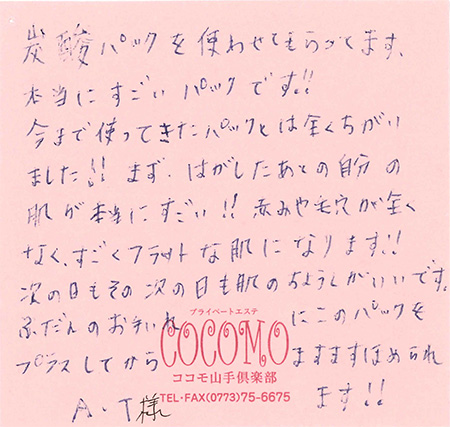 炭酸パックを使わせてもらってます、
本当にすごいパックです!!
今まで使ってきたパックとは全くちがい
ました!! まず、はがしたあとの自分の
肌が本当にすごい!! 赤みや毛穴が全く
なく、すごくフラットな肌になります!!
次の日もその次の日も肌のちょうしがいいです。
ふだんのお手いれにこのパックを
プラスしてからますますほめられ
ます!!
A・T様
プライベートエステ
COCOMO
ココモ山手倶楽部
TEL・FAX(0773)75-6675